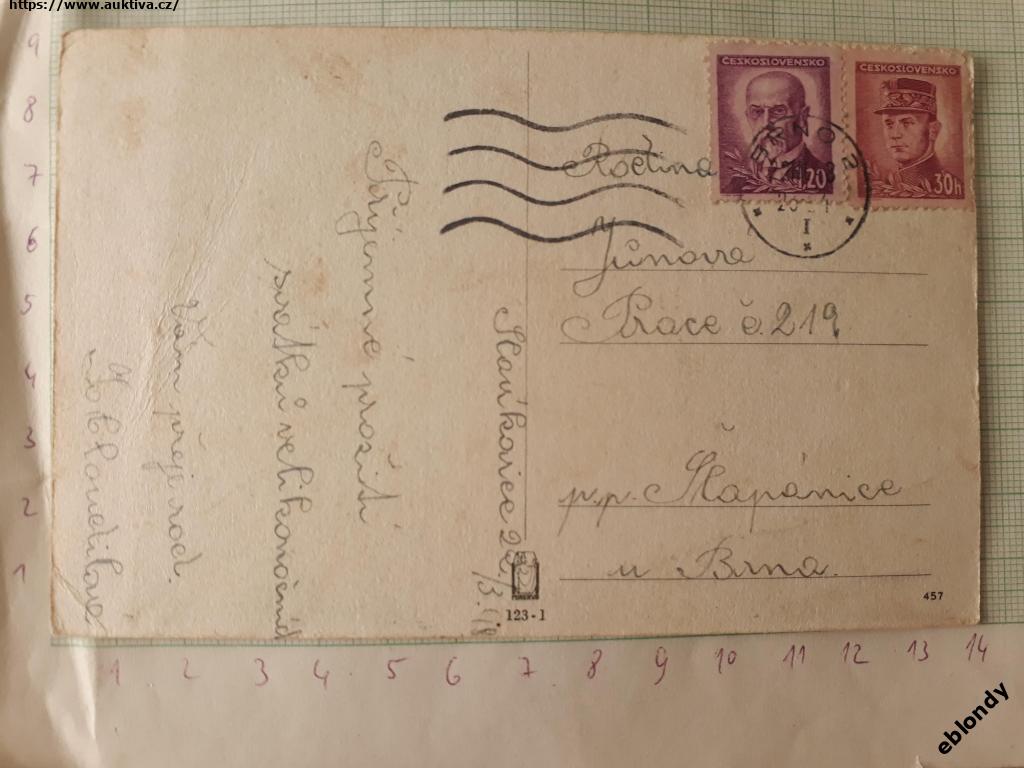 https://www.auktiva.cz/
ČESKOSLOVENSKO
ČESKOSLOVENSKO
1.20
30h
BRNO 2
I
Rodina
Jůnova
Práce č. 219
p.p. Šlapánice
u Brna.
Slavíkovice 22/3.48
Příjemné prožití
svátků velikonočních
Vám přeje rod.
123-1
457
9
8
7
6
5
4
3
2
1
1 2 3 4 5 6 7 8 9 10 11 12 13 14
eblondy